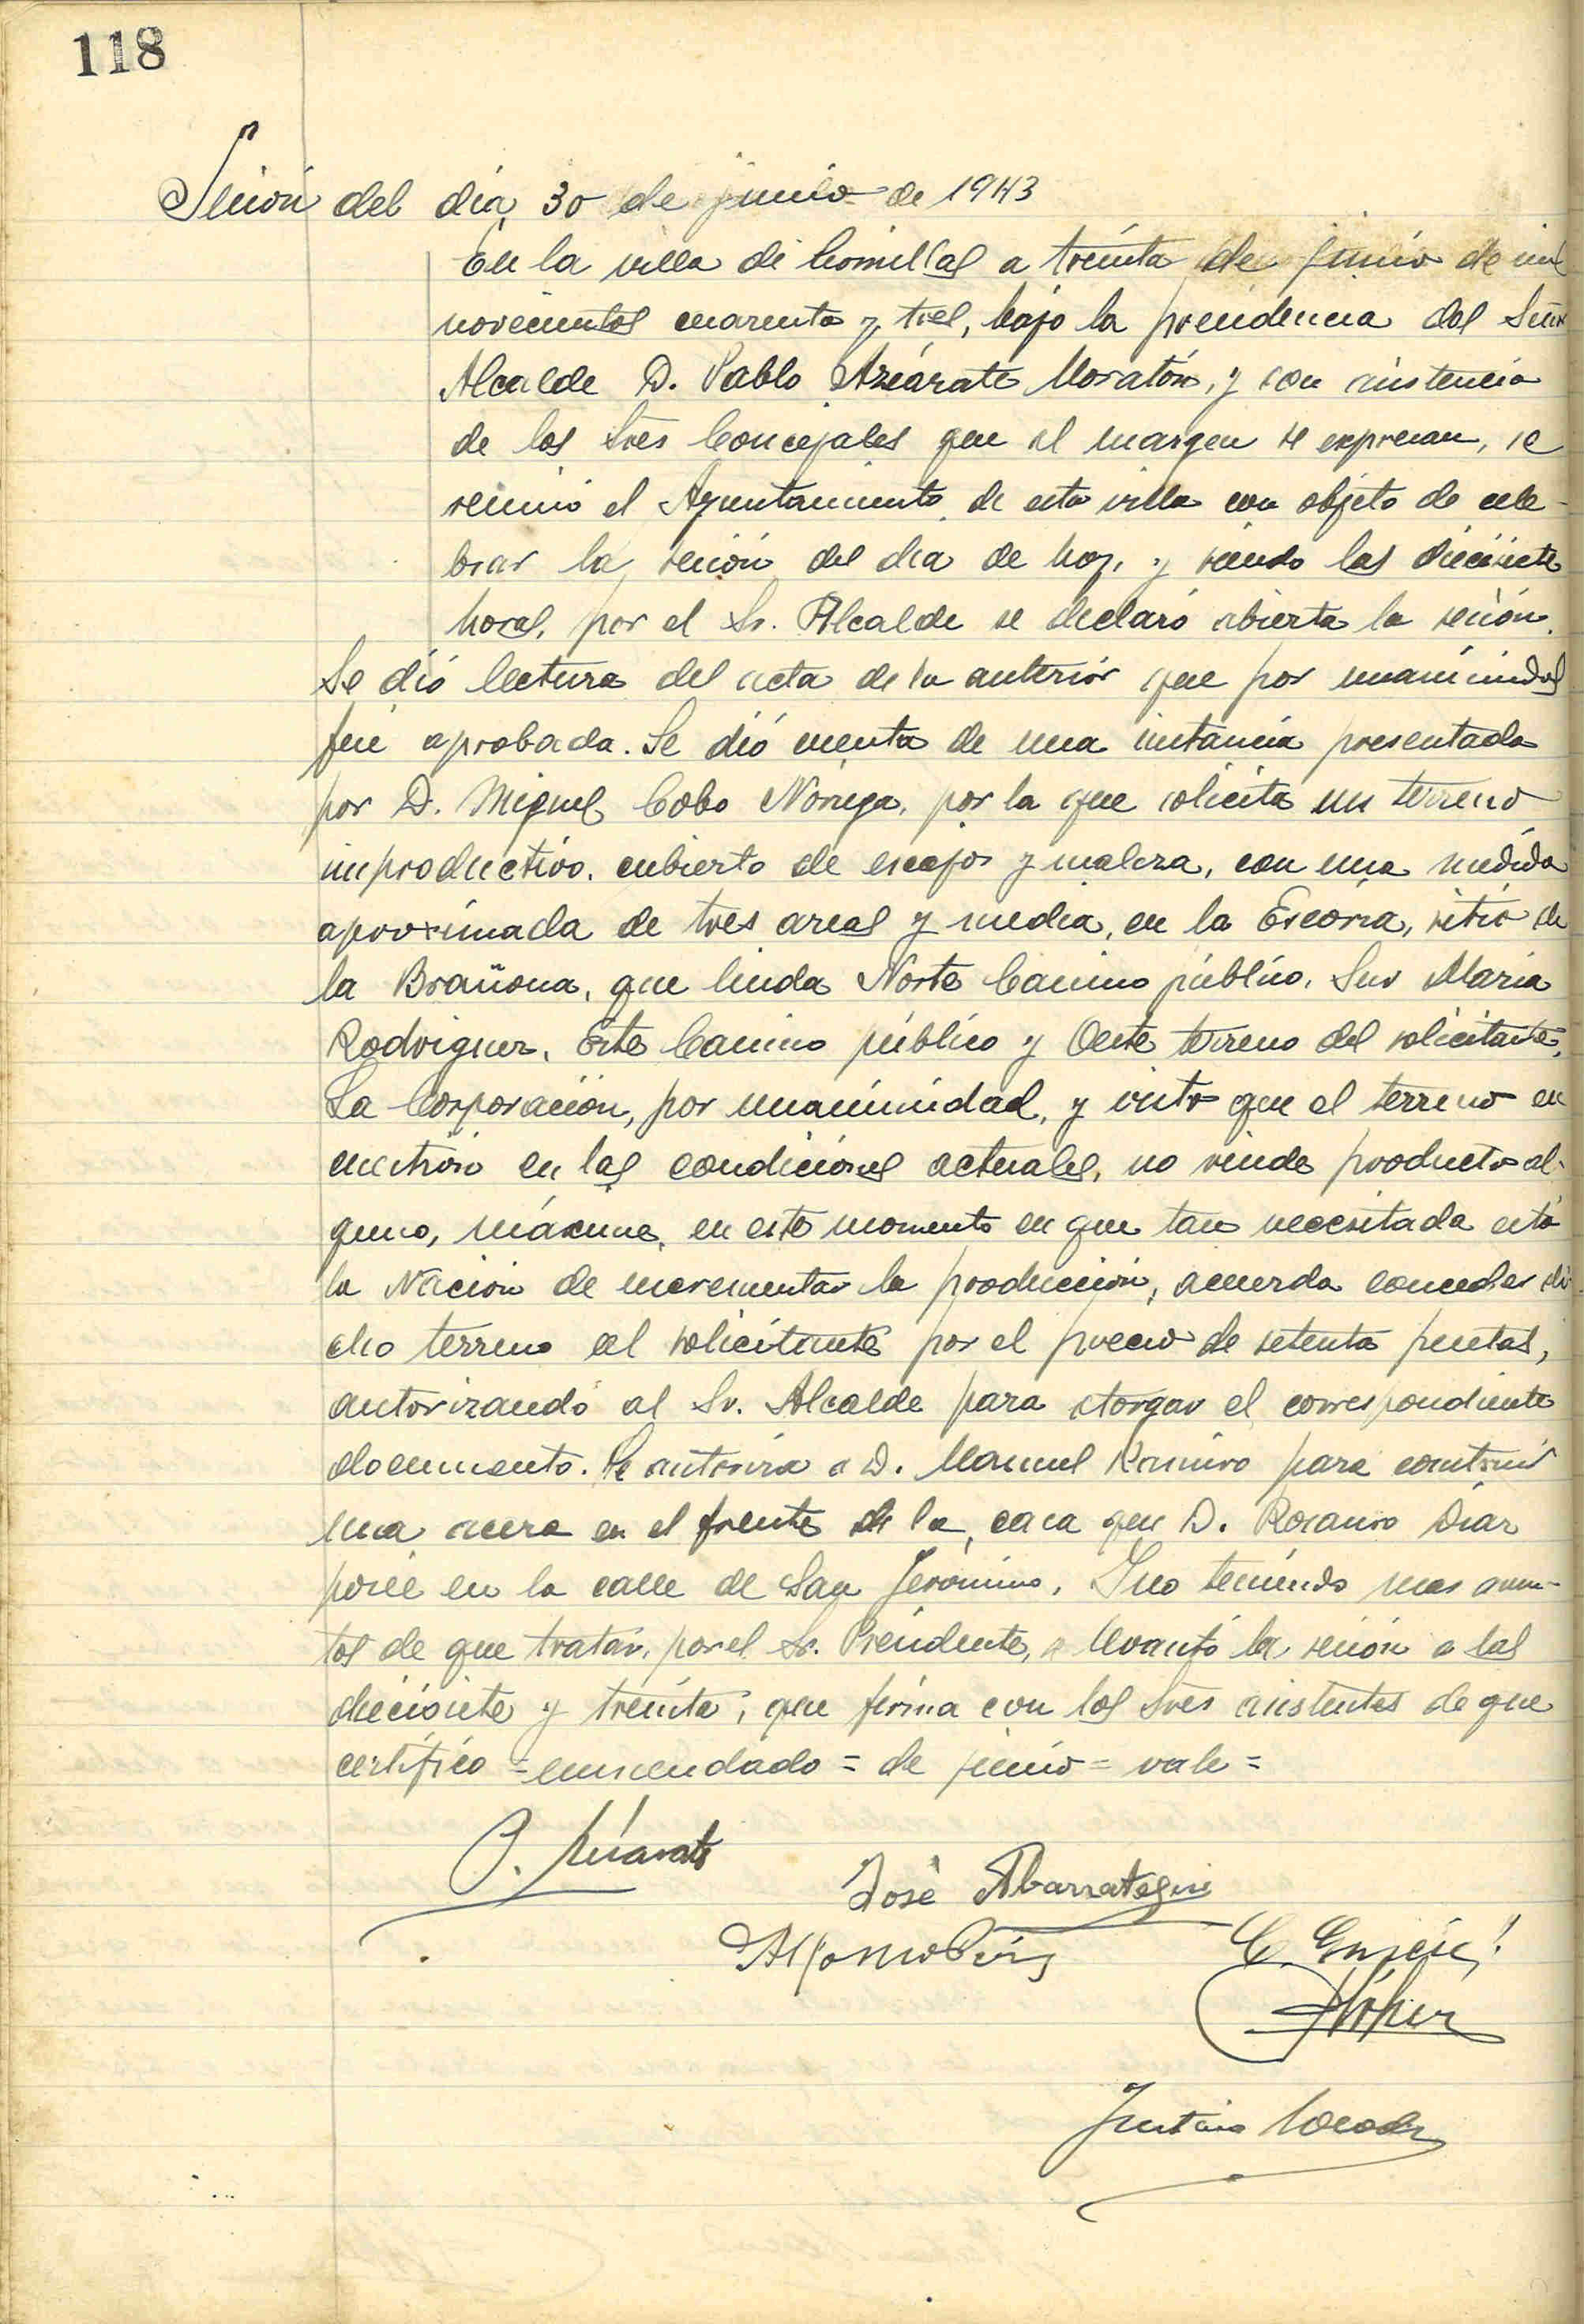 118
Sesión del día 30 de junio de 1943
En la villa de Comillas a treinta de junio de mil
novecientos cuarenta y tres, bajo la presidencia del Señor
Alcalde D. Pablo Azcárate Moratón, y con asistencia
de los Sres Concejales que al margen se expresan, se
reunió el Ayuntamiento de esta villa con objeto de cele-
brar la sesión del día de hoy, y siendo las diecisiete
horas, por el Sr. Alcalde se declaró abierta la sesión.
Se dió lectura del acta de la anterior que por unanimidad
fué aprobada. Se dió cuenta de una instancia presentada
por D. Miguel Cobo Noriega, por la que solicita un terreno
improductivo, cubierto de escajos y maleza, con una medida
aproximada de tres areas y media, en la Escoria, sitio de
la Brañona, que linda Norte Camino público, Sur Maria
Rodriguez, Este Camino público y Oeste terreno del solicitante.
La Corporación, por unanimidad, y visto que el terreno en
cuestión en las condiciones actuales, no rinde producto al-
guno, máxime, en este momento en que tan necesitada está
la Nación de incrementar la producción, acuerda conceder di
cho terreno al solicitante por el precio de setenta pesetas,
autorizando al Sr. Alcalde para otorgar el correspondiente
documento. Se autoriza a D. Manuel Ramiro para construir
una acera en el frente de la casa que D. Rosauro Díaz
posee en la calle de San Jerónimo. Y no teniendo mas asun-
tos de que tratar, por el Sr. Presidente, se levantó la sesión a las
diecisiete y treinta, que firma con los Sres asistentes de que
certifico = enmendado = de junio = vale =
P. Azcárate
José Abarrategui
Alfonso
Justino